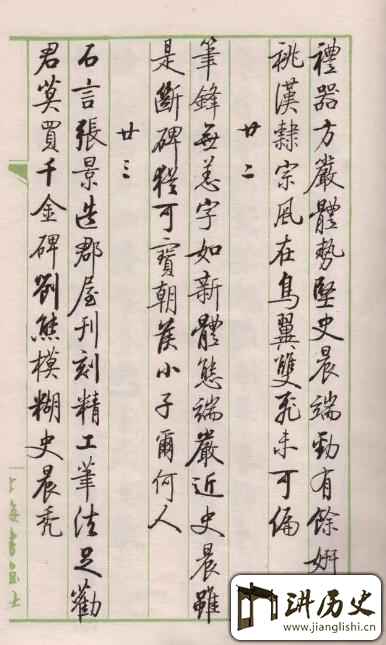 禮器方嚴體勢堅史晨端勁有餘妍
祧漢隸宗風在鳥翼雙飛未可偏
廿二
筆鋒無恙字如新體態端嚴近史晨雖
是斷碑猶可寶朝侯小子爾何人
廿三
石言張景造郡屋刊刻精工筆法足勸
君莫買千金碑劉熊模糊史晨禿
上海書画社
讲历史
www.jianglishi.cn